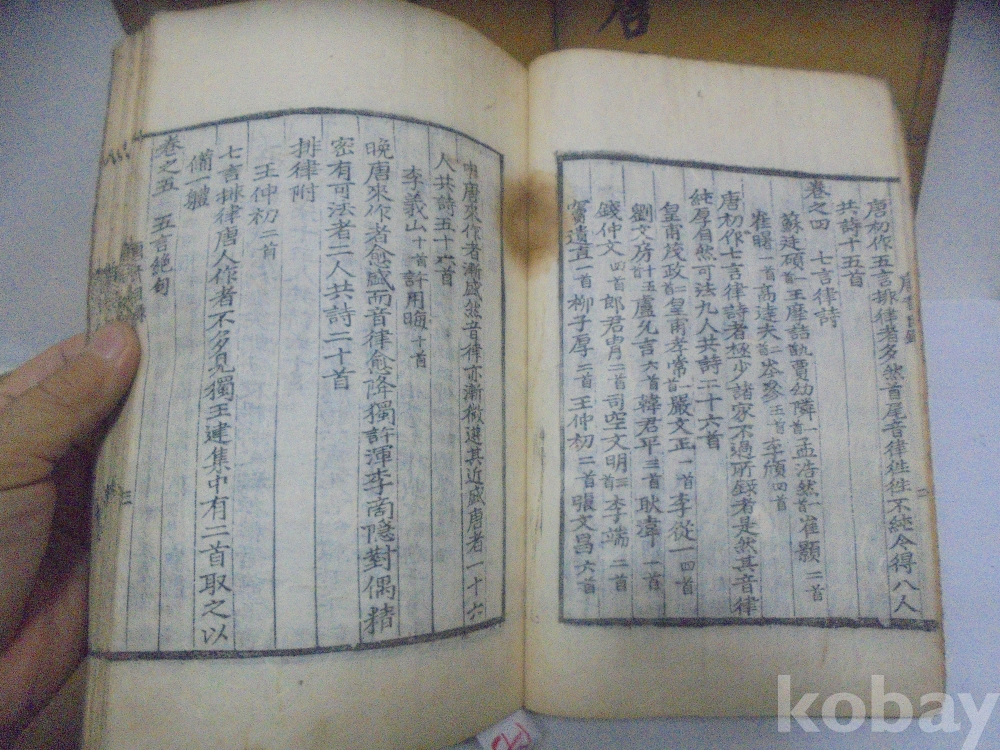 唐初作五言排律者多然首尾音律徃徃不純今得八人
共詩十五首
卷之四 七言律詩
蘇廷碩首王摩詰首賈幼隣一孟浩然一首崔顥二首
崔曙一首高達夫二首岑參五首李頎四首
唐初作七言律詩者極少諸家不過所錄者是然其音律
純厚自然可法九人共詩二十六首
皇甫茂政二首皇甫孝常一首嚴文正一首李從一四首
劉文房十五首盧允言六首韓君平三首耿湋一首
錢仲文四首郎君胄二首司空文明三李端二首
竇遺直一首柳子厚二首王仲初二首張文昌六首
中唐來作者漸盛然音律亦漸微選其近盛唐者一十六
人共詩五十六首
李義山十首許用晦十首
晚唐來作者愈盛而音律愈降獨許渾李商隱對偶精
密有可法者二人共詩二十首
排律附
王仲初二首
七言排律唐人作者不多見獨王建集中有二首取之以
備一軆
卷之五 五言絶句
kobay